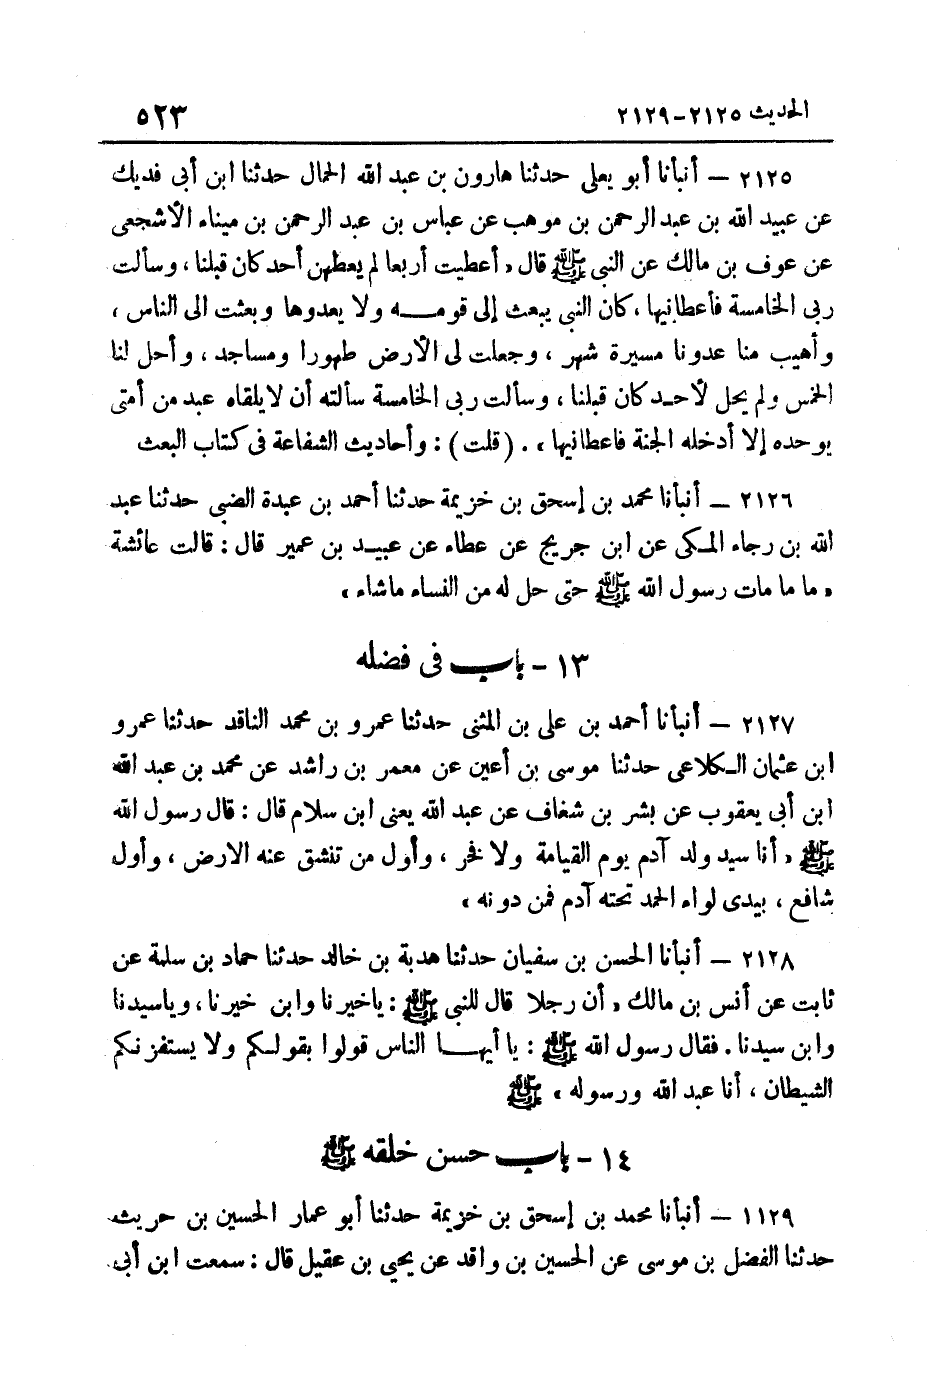 الحديث ٢١٢٥-٢١٢٩ ٥٢٣
٢١٢٥ – أنبأنا أبو يعلى حدثنا هارون بن عبد الله الحمال حدثنا ابن أبى فديك
عن عبيد الله بن عبد الرحمن بن موهب عن عباس بن عبد الرحمن بن ميناء الأشجعى
عن عوف بن مالك عن النبي ﷺ قال « أعطيت أربعا لم يعطهن أحد كان قبلنا ، وسألت
ربى الخامسة فأعطانيها ، كان النبي يبعث إلى قومـــه ولا يعدوها وبعثت الى الناس ،
وأهيب منا عدونا مسيرة شهر ، وجعلت لى الأرض طهورا ومساجد ، وأحل لنا
الخمس ولم يحل لأحد كان قبلنا ، وسألت ربى الخامسة سألته أن لا يلقاه عبد من أمتى
يوحده إلا أدخله الجنة فاعطانيها » . ( قلت ) : وأحاديث الشفاعة فى كتاب البعث
٢١٢٦ – أنبأنا محمد بن إسحق بن خزيمة حدثنا أحمد بن عبدة الضبي حدثنا عبد
الله بن رجاء المكى عن ابن جريج عن عطاء عن عبيد بن عمير قال : قالت عائشة
« ما ما مات رسول الله ﷺ حتى حل له من النساء ماشاء »
١٣ - باب فى فضله
٢١٢٧ – أنبأنا أحمد بن على بن المثنى حدثنا عمرو بن محمد الناقد حدثنا عمرو
ابن عثمان الكلاعى حدثنا موسى بن أعين عن معمر بن راشد عن محمد بن عبد الله
ابن أبي يعقوب عن بشر بن شغاف عن عبد الله يعنى ابن سلام قال : قال رسول الله
ﷺ « أنا سيد ولد آدم يوم القيامة ولا فخر ، وأول من تنشق عنه الارض ، وأول
شافع ، بيدى لواء الحمد تحته آدم فمن دونه »
٢١٢٨ – أنبأنا الحسن بن سفيان حدثنا هدبة بن خالد حدثنا حماد بن سلمة عن
ثابت عن أنس بن مالك « أن رجلا قال للنبي ﷺ : ياخيرنا وابن خيرنا ، وياسيدنا
وابن سيدنا . فقال رسول الله ﷺ : يا أيهـــا الناس قولوا بقولكم ولا يستفزنكم
الشيطان ، أنا عبد الله ورسوله » ﷺ
١٤ - باب حسن خلقه ﷺ
١١٢٩ – أنبأنا محمد بن إسحق بن خزيمة حدثنا أبو عمار الحسين بن حريث
حدثنا الفضل بن موسى عن الحسين بن واقد عن يحيى بن عقيل قال : سمعت ابن أبي